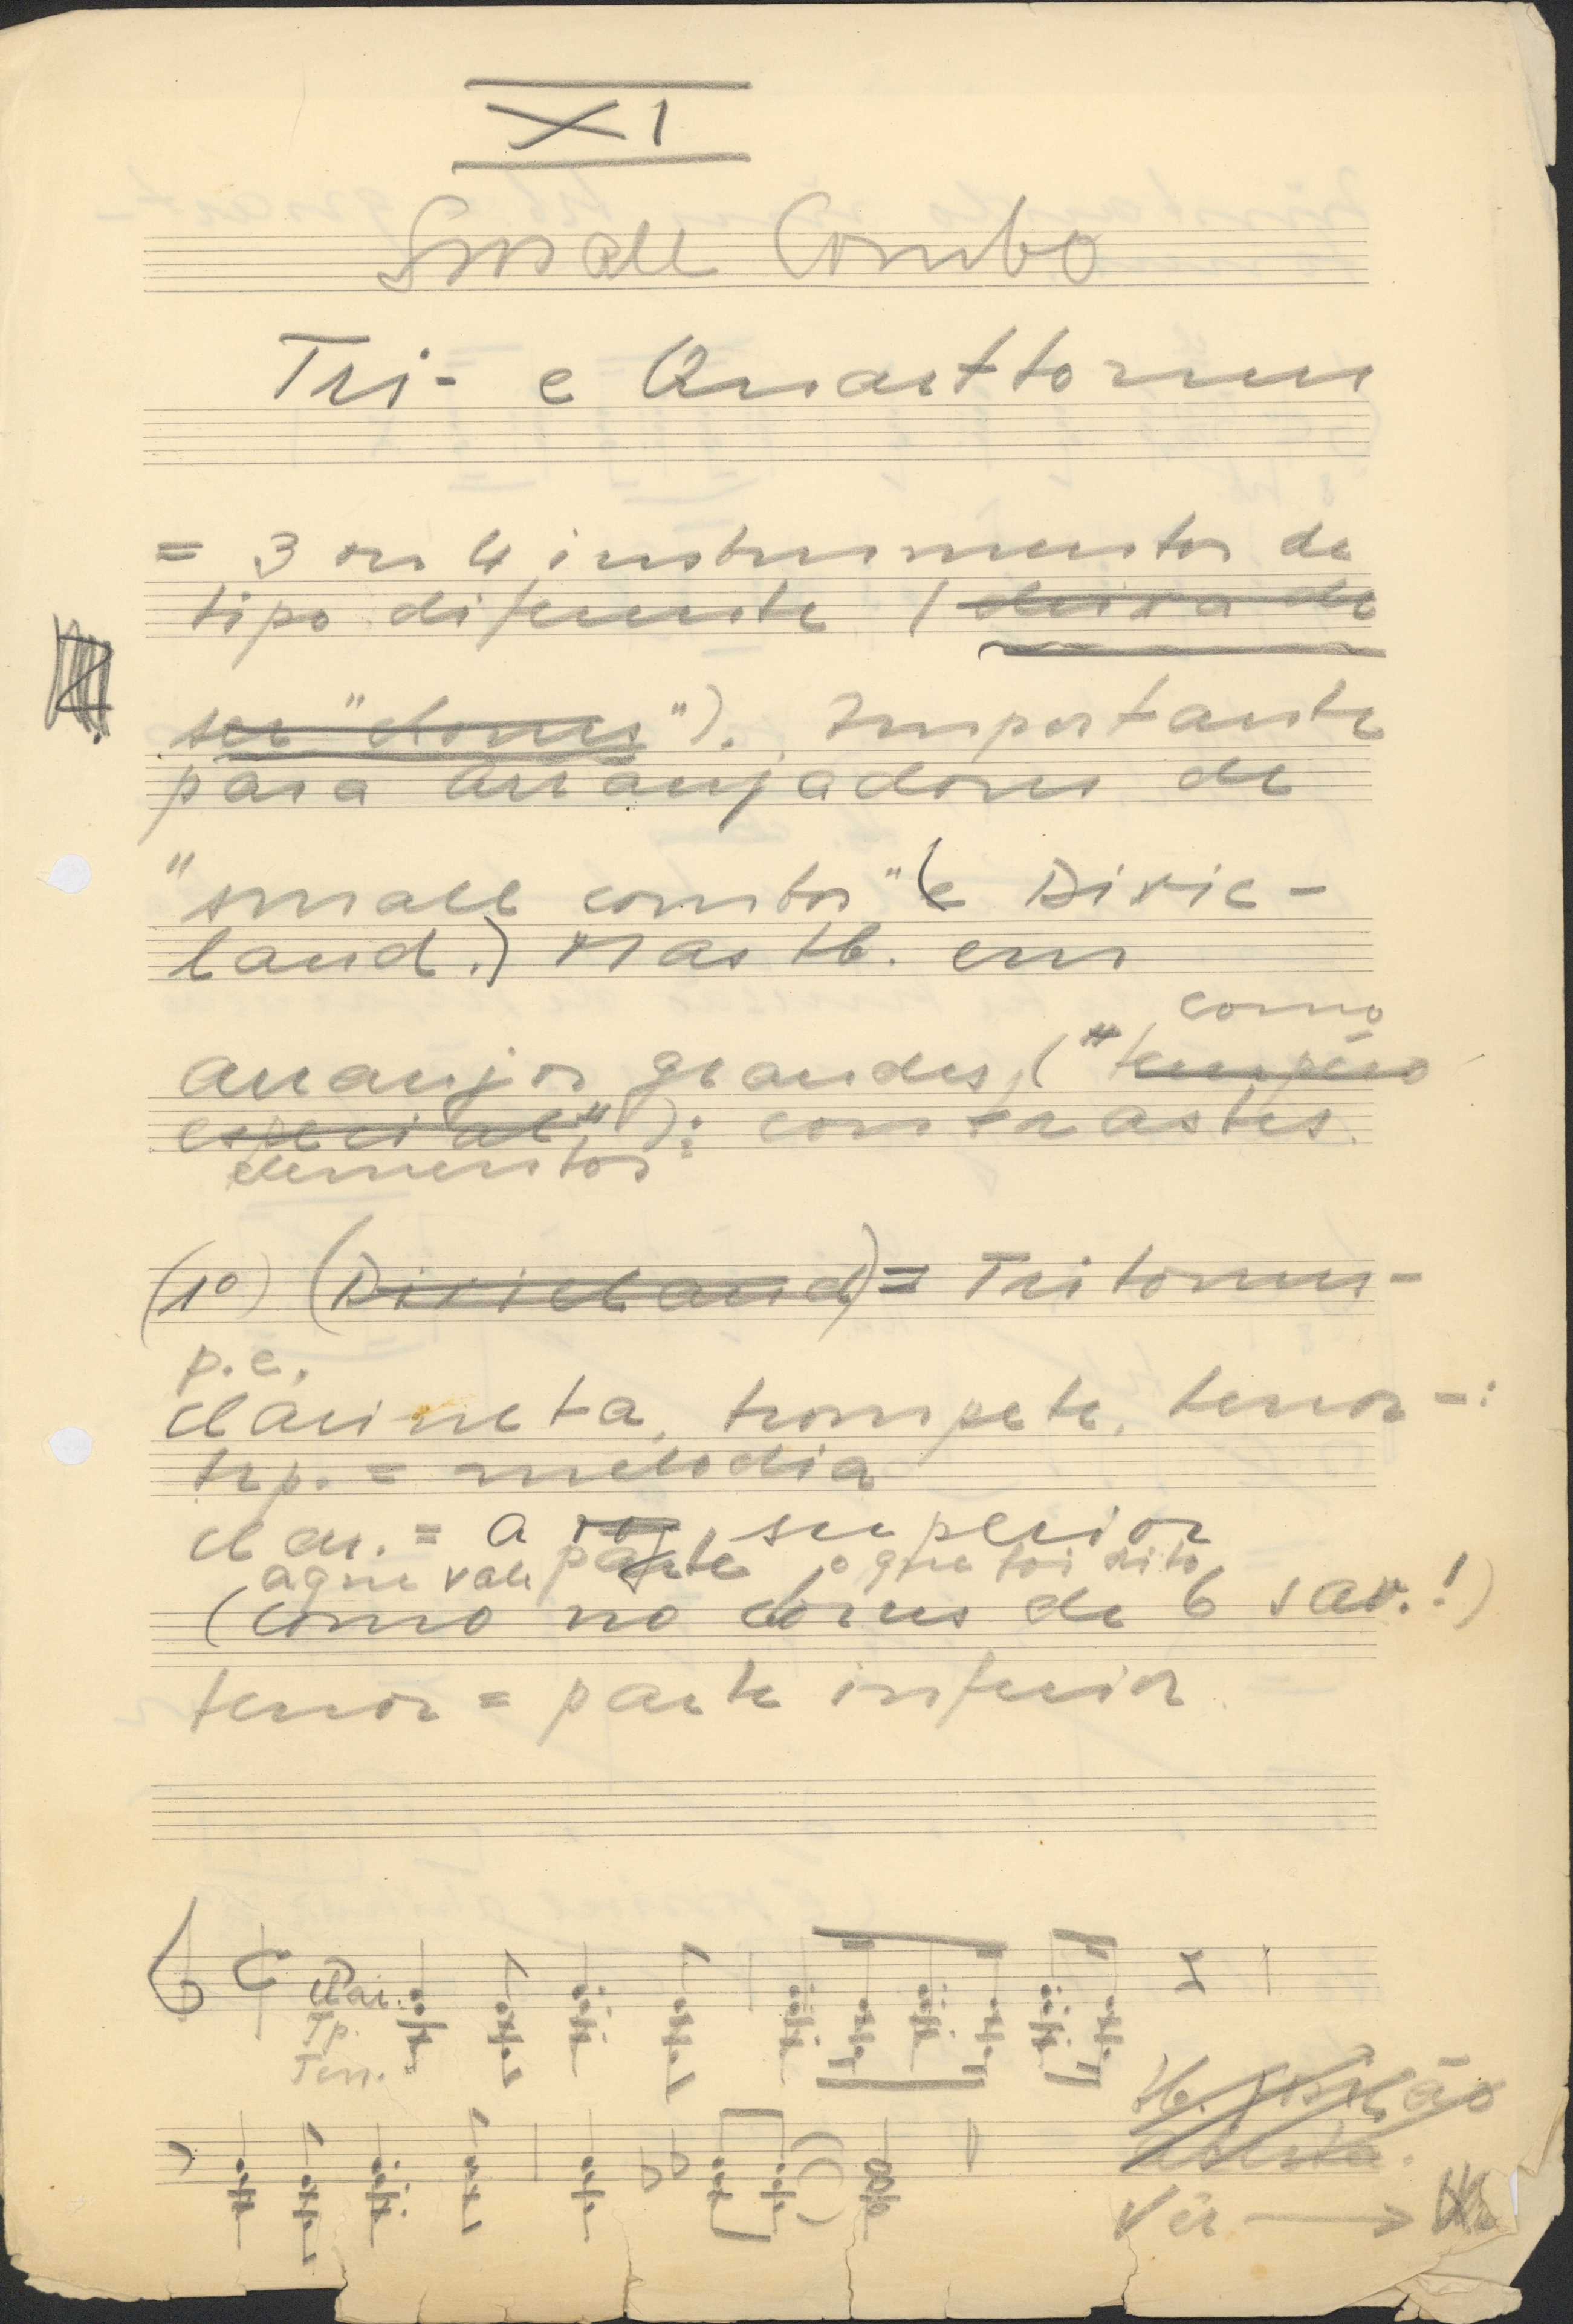 XI
Small Combo
Tri- e Quarttonus
= 3 ou 4 instrumentos de
tipo diferente (deixa de
ser "chorus"). Importante
para arranjadores de
"small combos" (e Dixie-
land.) Mas tb. em
como
arranjos grandes, ("tempêro
especial"): contrastes.
elementos
(1º) (Dixieland) = Tritonus-
p.e.
clarineta, trompete, tenor-:
trp. = melodia
clar. = a parte superior
aqui vale o que foi dito
(como no chorus de 6 sax.!)
tenor = parte inferior.
Clar.
Tp.
Ten.
tb. posição
aberta.
Vêr →